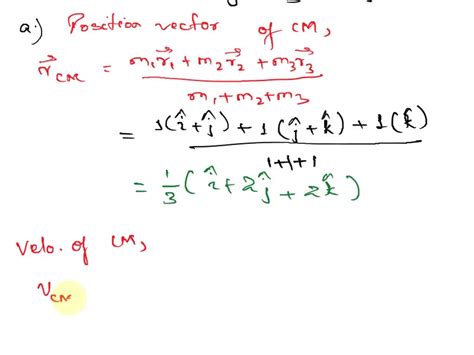 a:) Position vector of CM,
r⃗_CM = (m₁r⃗₁ + m₂r⃗₂ + m₃r⃗₃) / (m₁+m₂+m₃)
= (1(î+ĵ) + 1(ĵ+k̂) + 1(k̂)) / (1+1+1)
= 1/3 (î+2ĵ+2k̂)
Velo. of CM,
v_CM